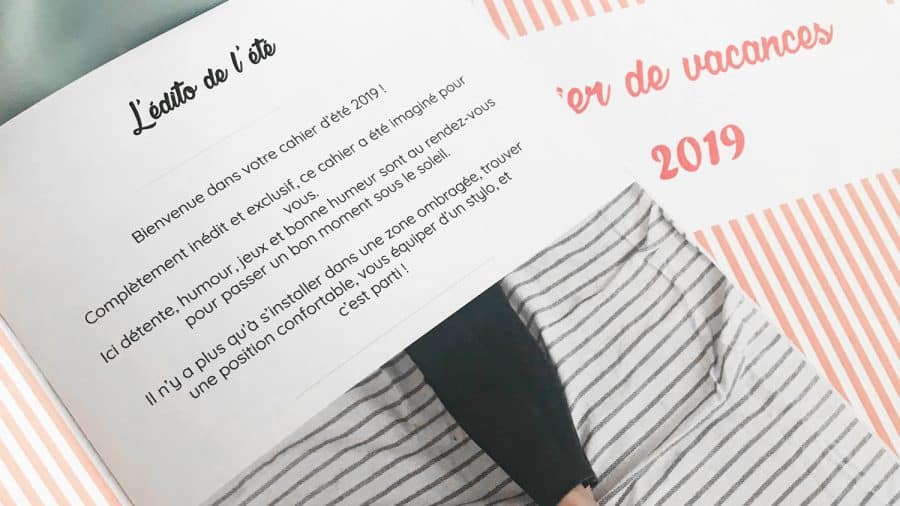 L'édito de l'été
Bienvenue dans votre cahier d'été 2019 !
Complètement inédit et exclusif, ce cahier a été imaginé pour
vous.
Ici détente, humour, jeux et bonne humeur sont au rendez-vous
pour passer un bon moment sous le soleil.
Il n'y a plus qu'à s'installer dans une zone ombragée, trouver
une position confortable, vous équiper d'un stylo, et
c'est parti !
de vacances
2019